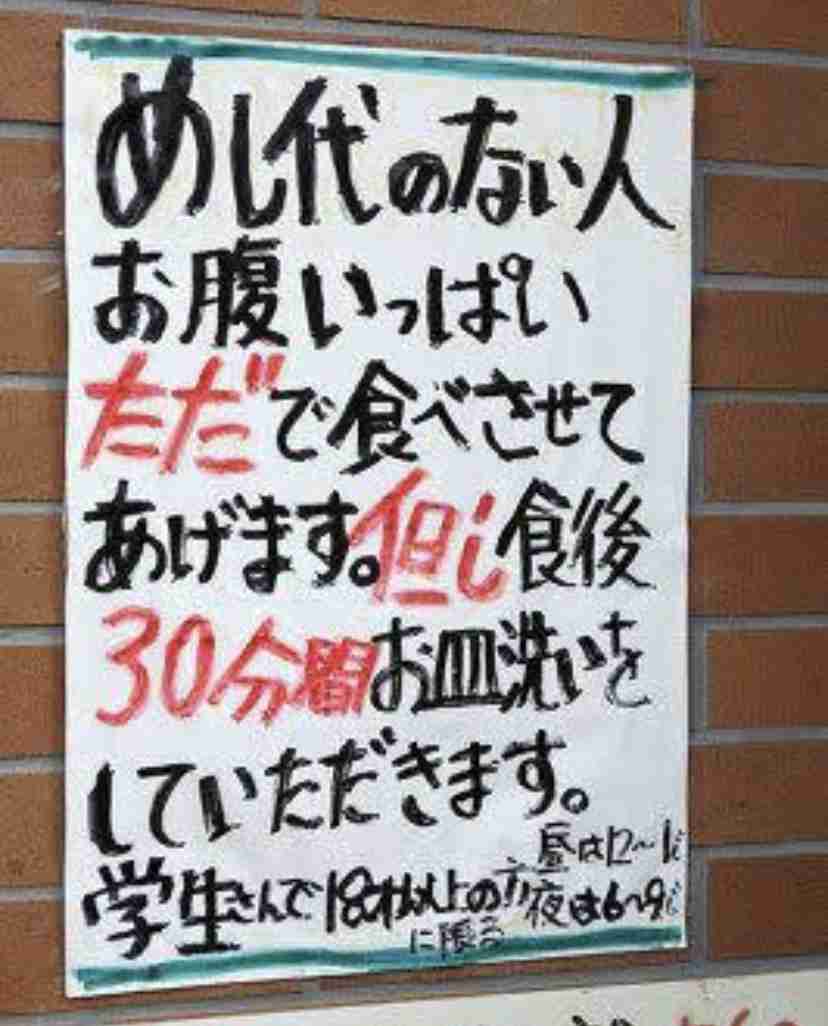 めし代のない人
お腹いっぱい
ただで食べさせて
あげます。但し食後
30分間お皿洗いを
していただきます。
学生さんで18才以上の方
に限る
昼は12〜
夜は6〜9